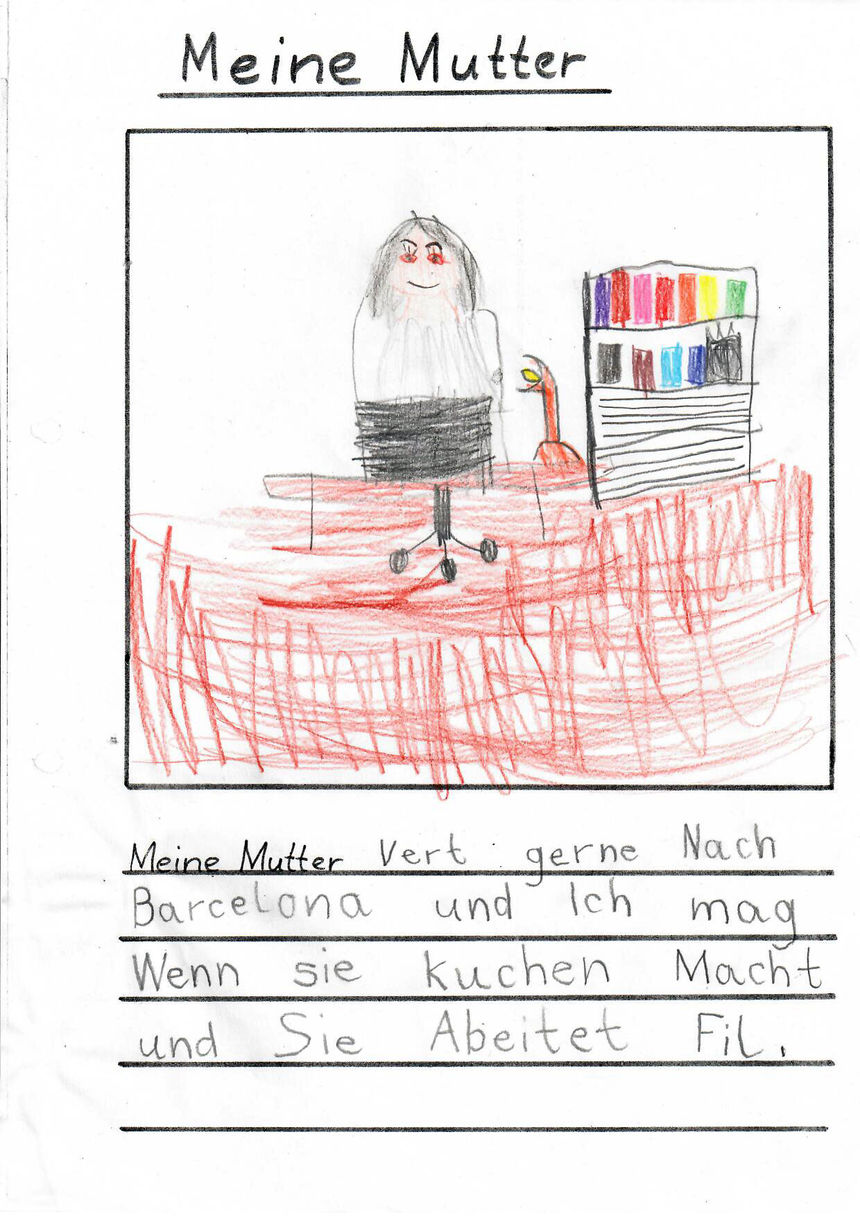 Meine Mutter
Meine Mutter Vert gerne Nach
Barcelona und Ich mag
Wenn sie kuchen Macht
und Sie Abeitet Fil.